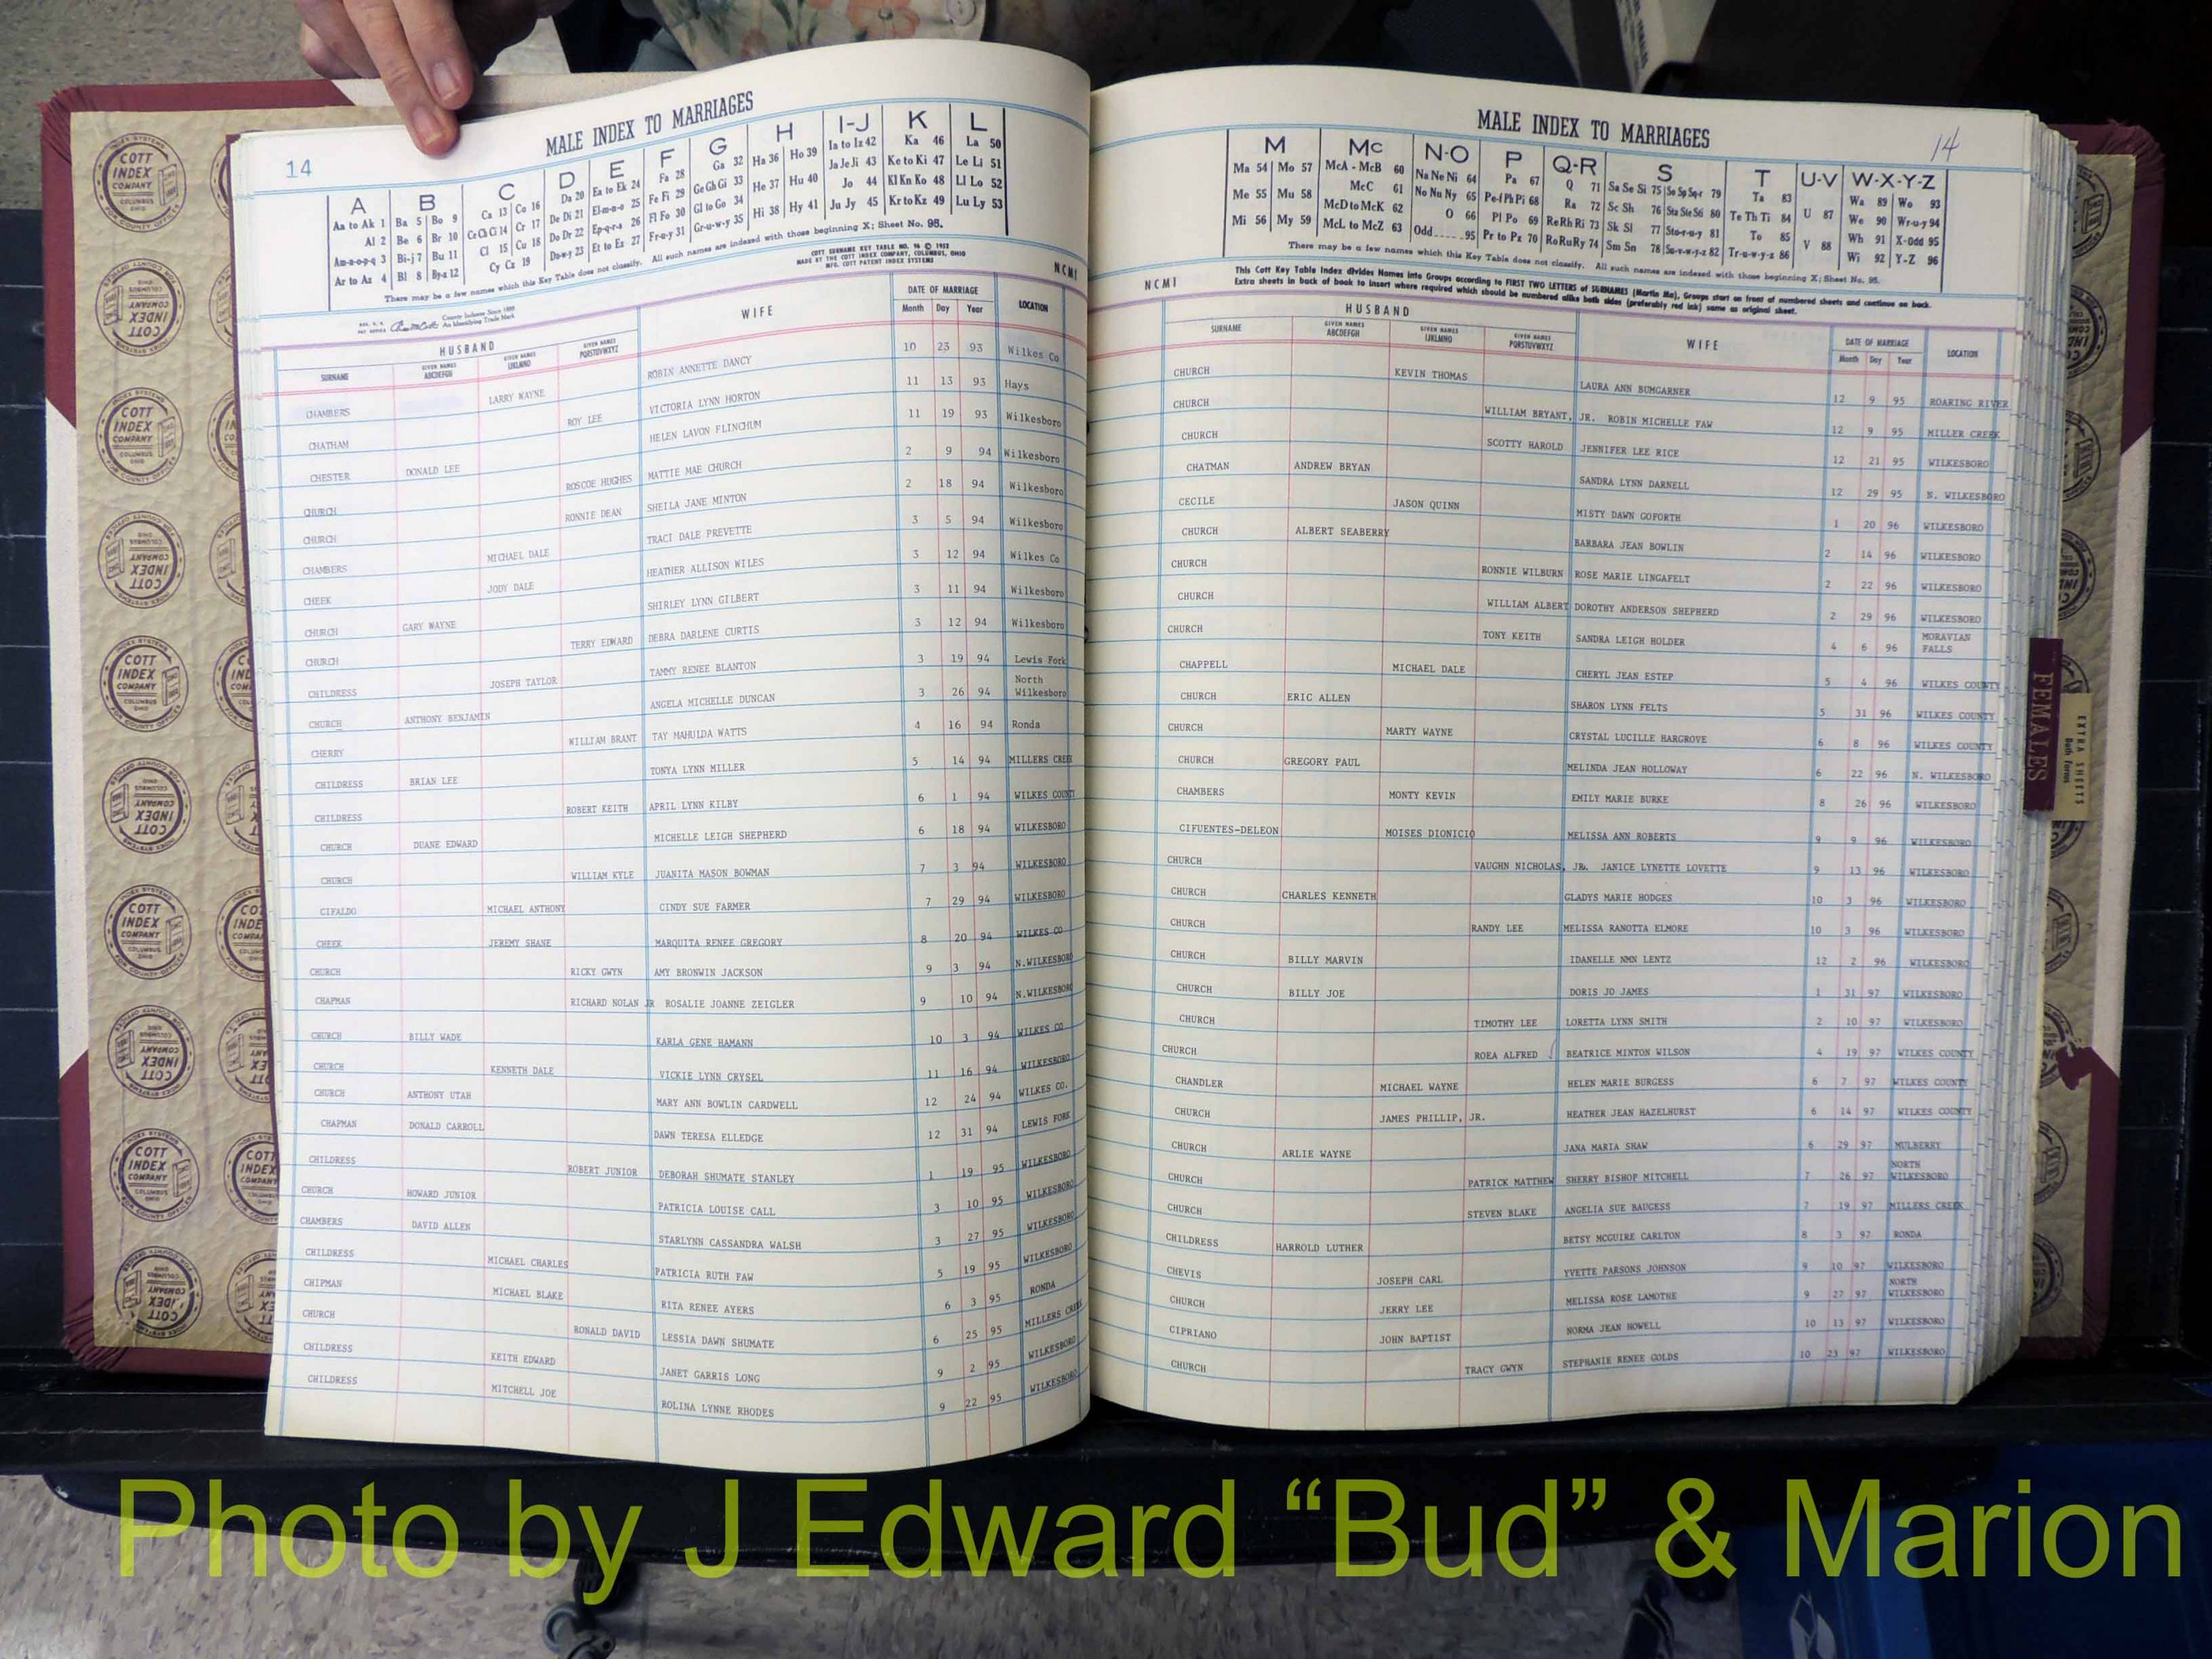 14
MALE INDEX TO MARRIAGES
A B C D E F G H I-J K L
Aa to Ak 1 Ba 5 Bo 9 Ca 13 Co 16 Da 20 Ea to Ek 24 Fa 28 Ga 32 Ha 36 Ho 39 Ia to Iz 42 Ka 46 La 50
Al 2 Be 6 Br 10 Ce Ch Ci 14 Cr 17 De Di 21 El-m-n-o 25 Fe Fi 29 Ge Gh Gi 33 He 37 Hu 40 Ja Je Ji 43 Ke to Ki 47 Le Li 51
Am-n-o-p-q 3 Bi-j 7 Bu 11 Cl 15 Cu 18 Do Dr 22 Ep-q-r-s 26 Fl Fo 30 Gl to Go 34 Hi 38 Hy 41 Jo 44 Kl Kn Ko 48 Ll Lo 52
Ar to Az 4 Bl 8 By-z 12 Cy Cz 19 Du-w-y 23 Et to Ez 27 Fr-u-y 31 Gr-u-w-y 35 Ju Jy 45 Kr to Kz 49 Lu Ly 53
There may be a few names which this Key Table does not classify. All such names are indexed with those beginning X; Sheet No. 95.
COTT SURNAME KEY TABLE NO. 96 © 1952
MADE BY THE COTT INDEX COMPANY, COLUMBUS, OHIO
MFG. COTT PATENT INDEX SYSTEMS
NCMI
County Indexes Since 1888
An Identifying Trade Mark
HUSBAND WIFE DATE OF MARRIAGE LOCATION
SURNAME GIVEN NAMES ABCDEFGH GIVEN NAMES IJKLMNO GIVEN NAMES PQRSTUVWXYZ Month Day Year
CHAMBERS LARRY WAYNE ROBIN ANNETTE DANCY 10 23 93 Wilkes Co
CHATHAM ROY LEE VICTORIA LYNN HORTON 11 13 93 Hays
CHESTER DONALD LEE HELEN LAVON FLINCHUM 11 19 93 Wilkesboro
CHURCH ROSCOE HUGHES MATTIE MAE CHURCH 2 9 94 Wilkesboro
CHURCH RONNIE DEAN SHEILA JANE MINTON 2 18 94 Wilkesboro
CHAMBERS MICHAEL DALE TRACI DALE PREVETTE 3 5 94 Wilkesboro
CHEEK JODY DALE HEATHER ALLISON WILES 3 12 94 Wilkes Co
CHURCH GARY WAYNE SHIRLEY LYNN GILBERT 3 11 94 Wilkesboro
CHURCH TERRY EDWARD DEBRA DARLENE CURTIS 3 12 94 Wilkesboro
CHILDRESS JOSEPH TAYLOR TAMMY RENEE BLANTON 3 19 94 Lewis Fork
CHURCH ANTHONY BENJAMIN ANGELA MICHELLE DUNCAN 3 26 94 North Wilkesboro
CHERRY WILLIAM BRANT TAY MAHULDA WATTS 4 16 94 Ronda
CHILDRESS BRIAN LEE TONYA LYNN MILLER 5 14 94 MILLERS CREEK
CHILDRESS ROBERT KEITH APRIL LYNN KILBY 6 1 94 WILKES COUNTY
CHURCH DUANE EDWARD MICHELLE LEIGH SHEPHERD 6 18 94 WILKESBORO
CHURCH WILLIAM KYLE JUANITA MASON BOWMAN 7 3 94 WILKESBORO
CIFALDO MICHAEL ANTHONY CINDY SUE FARMER 7 29 94 WILKESBORO
CHEEK JEREMY SHANE MARQUITA RENEE GREGORY 8 20 94 WILKES CO
CHURCH RICKY GWYN AMY BRONWIN JACKSON 9 3 94 N.WILKESBORO
CHAPMAN RICHARD NOLAN JR ROSALIE JOANNE ZEIGLER 9 10 94 N.WILKESBORO
CHURCH BILLY WADE KARLA GENE HAMANN 10 3 94 WILKES CO
CHURCH KENNETH DALE VICKIE LYNN CRYSEL 11 16 94 WILKESBORO
CHURCH ANTHONY UTAH MARY ANN BOWLIN CARDWELL 12 24 94 WILKES CO.
CHAPMAN DONALD CARROLL DAWN TERESA ELLEDGE 12 31 94 LEWIS FORK
CHILDRESS ROBERT JUNIOR DEBORAH SHUMATE STANLEY 1 19 95 WILKESBORO
CHURCH HOWARD JUNIOR PATRICIA LOUISE CALL 3 10 95 WILKESBORO
CHAMBERS DAVID ALLEN STARLYNN CASSANDRA WALSH 3 27 95 WILKESBORO
CHILDRESS MICHAEL CHARLES PATRICIA RUTH FAW 5 19 95 WILKESBORO
CHIPMAN MICHAEL BLAKE RITA RENEE AYERS 6 3 95 RONDA
CHURCH RONALD DAVID LESSIA DAWN SHUMATE 6 25 95 MILLERS CREEK
CHILDRESS KEITH EDWARD JANET GARRIS LONG 9 2 95 WILKESBORO
CHILDRESS MITCHELL JOE ROLINA LYNNE RHODES 9 22 95 WILKESBORO
MALE INDEX TO MARRIAGES
14
M Mc N-O P Q-R S T U-V W-X-Y-Z
Ma 54 Mo 57 McA - McB 60 Na Ne Ni 64 Pa 67 Q 71 Sa Se Si 75 So Sp Sq-r 79 Ta 83 Wa 89 Wo 93
Me 55 Mu 58 McC 61 No Nu Ny 65 Pe-f Ph Pi 68 Ra 72 Sc Sh 76 Sta Ste Sti 80 Te Th Ti 84 U 87 We 90 Wr-u-y 94
Mi 56 My 59 McD to McK 62 O 66 Pl Po 69 Re Rh Ri 73 Sk Sl 77 Sto-r-u-y 81 To 85 V 88 Wh 91 X-Odd 95
McL to McZ 63 Odd 95 Pr to Pz 70 Ro Ru Ry 74 Sm Sn 78 Su-v-w-y-z 82 Tr-u-w-y-z 86 Wi 92 Y-Z 96
There may be a few names which this Key Table does not classify. All such names are indexed with those beginning X; Sheet No. 95.
This Cott Key Table Index divides Names into Groups according to FIRST TWO LETTERS of SURNAMES (Martin Ma), Groups start on front of numbered sheets and continue on back.
Extra sheets in back of book to insert where required which should be numbered alike both sides (preferably red ink) same as original sheet.
NCMI
HUSBAND WIFE DATE OF MARRIAGE LOCATION
SURNAME GIVEN NAMES ABCDEFGH GIVEN NAMES IJKLMNO GIVEN NAMES PQRSTUVWXYZ Month Day Year
CHURCH KEVIN THOMAS LAURA ANN BUMGARNER 12 9 95 ROARING RIVER
CHURCH WILLIAM BRYANT, JR. ROBIN MICHELLE FAW 12 9 95 MILLER CREEK
CHURCH SCOTTY HAROLD JENNIFER LEE RICE 12 21 95 WILKESBORO
CHATMAN ANDREW BRYAN SANDRA LYNN DARNELL 12 29 95 N. WILKESBORO
CECILE JASON QUINN MISTY DAWN GOFORTH 1 20 96 WILKESBORO
CHURCH ALBERT SEABERRY BARBARA JEAN BOWLIN 2 14 96 WILKESBORO
CHURCH RONNIE WILBURN ROSE MARIE LINGAFELT 2 22 96 WILKESBORO
CHURCH WILLIAM ALBERT DOROTHY ANDERSON SHEPHERD 2 29 96 WILKESBORO
CHURCH TONY KEITH SANDRA LEIGH HOLDER 4 6 96 MORAVIAN FALLS
CHAPPELL MICHAEL DALE CHERYL JEAN ESTEP 5 4 96 WILKES COUNTY
CHURCH ERIC ALLEN SHARON LYNN FELTS 5 31 96 WILKES COUNTY
CHURCH MARTY WAYNE CRYSTAL LUCILLE HARGROVE 6 8 96 WILKES COUNTY
CHURCH GREGORY PAUL MELINDA JEAN HOLLOWAY 6 22 96 N. WILKESBORO
CHAMBERS MONTY KEVIN EMILY MARIE BURKE 8 26 96 WILKESBORO
CIFUENTES-DELEON MOISES DIONICIO MELISSA ANN ROBERTS 9 9 96 WILKESBORO
CHURCH VAUGHN NICHOLAS, JR. JANICE LYNETTE LOVETTE 9 13 96 WILKESBORO
CHURCH CHARLES KENNETH GLADYS MARIE HODGES 10 3 96 WILKESBORO
CHURCH RANDY LEE MELISSA RANOTTA ELMORE 10 3 96 WILKESBORO
CHURCH BILLY MARVIN IDANELLE NMN LENTZ 12 2 96 WILKESBORO
CHURCH BILLY JOE DORIS JO JAMES 1 31 97 WILKESBORO
CHURCH TIMOTHY LEE LORETTA LYNN SMITH 2 10 97 WILKESBORO
CHURCH ROEA ALFRED BEATRICE MINTON WILSON 4 19 97 WILKES COUNTY
CHANDLER MICHAEL WAYNE HELEN MARIE BURGESS 6 7 97 WILKES COUNTY
CHURCH JAMES PHILLIP, JR. HEATHER JEAN HAZELHURST 6 14 97 WILKES COUNTY
CHURCH ARLIE WAYNE JANA MARIA SHAW 6 29 97 MULBERRY
CHURCH PATRICK MATTHEW SHERRY BISHOP MITCHELL 7 26 97 NORTH WILKESBORO
CHURCH STEVEN BLAKE ANGELIA SUE BAUGESS 7 19 97 MILLERS CREEK
CHILDRESS HARROLD LUTHER BETSY MCGUIRE CARLTON 8 3 97 RONDA
CHEVIS JOSEPH CARL YVETTE PARSONS JOHNSON 9 10 97 WILKESBORO
CHURCH JERRY LEE MELISSA ROSE LAMOTHE 9 27 97 NORTH WILKESBORO
CIPRIANO JOHN BAPTIST NORMA JEAN HOWELL 10 13 97 WILKESBORO
CHURCH TRACY GWYN STEPHANIE RENEE GOLDS 10 23 97 WILKESBORO
FEMALES
EXTRA SHEETS
Both Forms
COTT INDEX COMPANY COLUMBUS OHIO
Photo by J Edward “Bud” & Marion